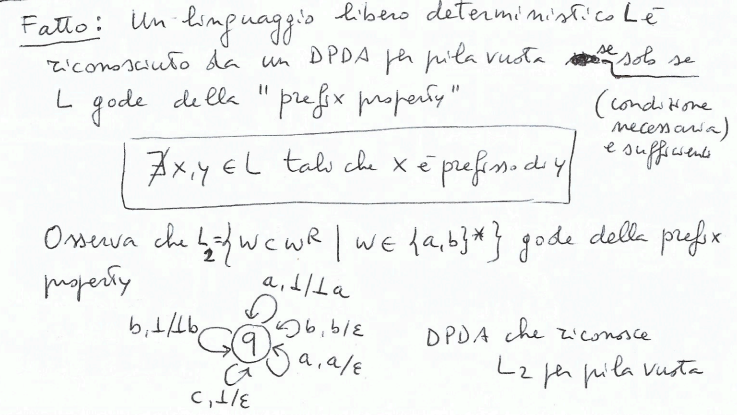 Fatto: Un linguaggio libero deterministico L è
riconosciuto da un DPDA per pila vuota se solo se
L gode della "prefix property"
(condizione
necessaria)
e sufficiente
∄x,y ∈ L tali che x è prefisso di y
Osserva che L₂={wcwᴿ | w∈ {a,b}*} gode della prefix
property
a,⊥/⊥a
b,⊥/⊥b
b, b/ε
q
a, a/ε
c,⊥/ε
DPDA che riconosce
L₂ per pila vuota